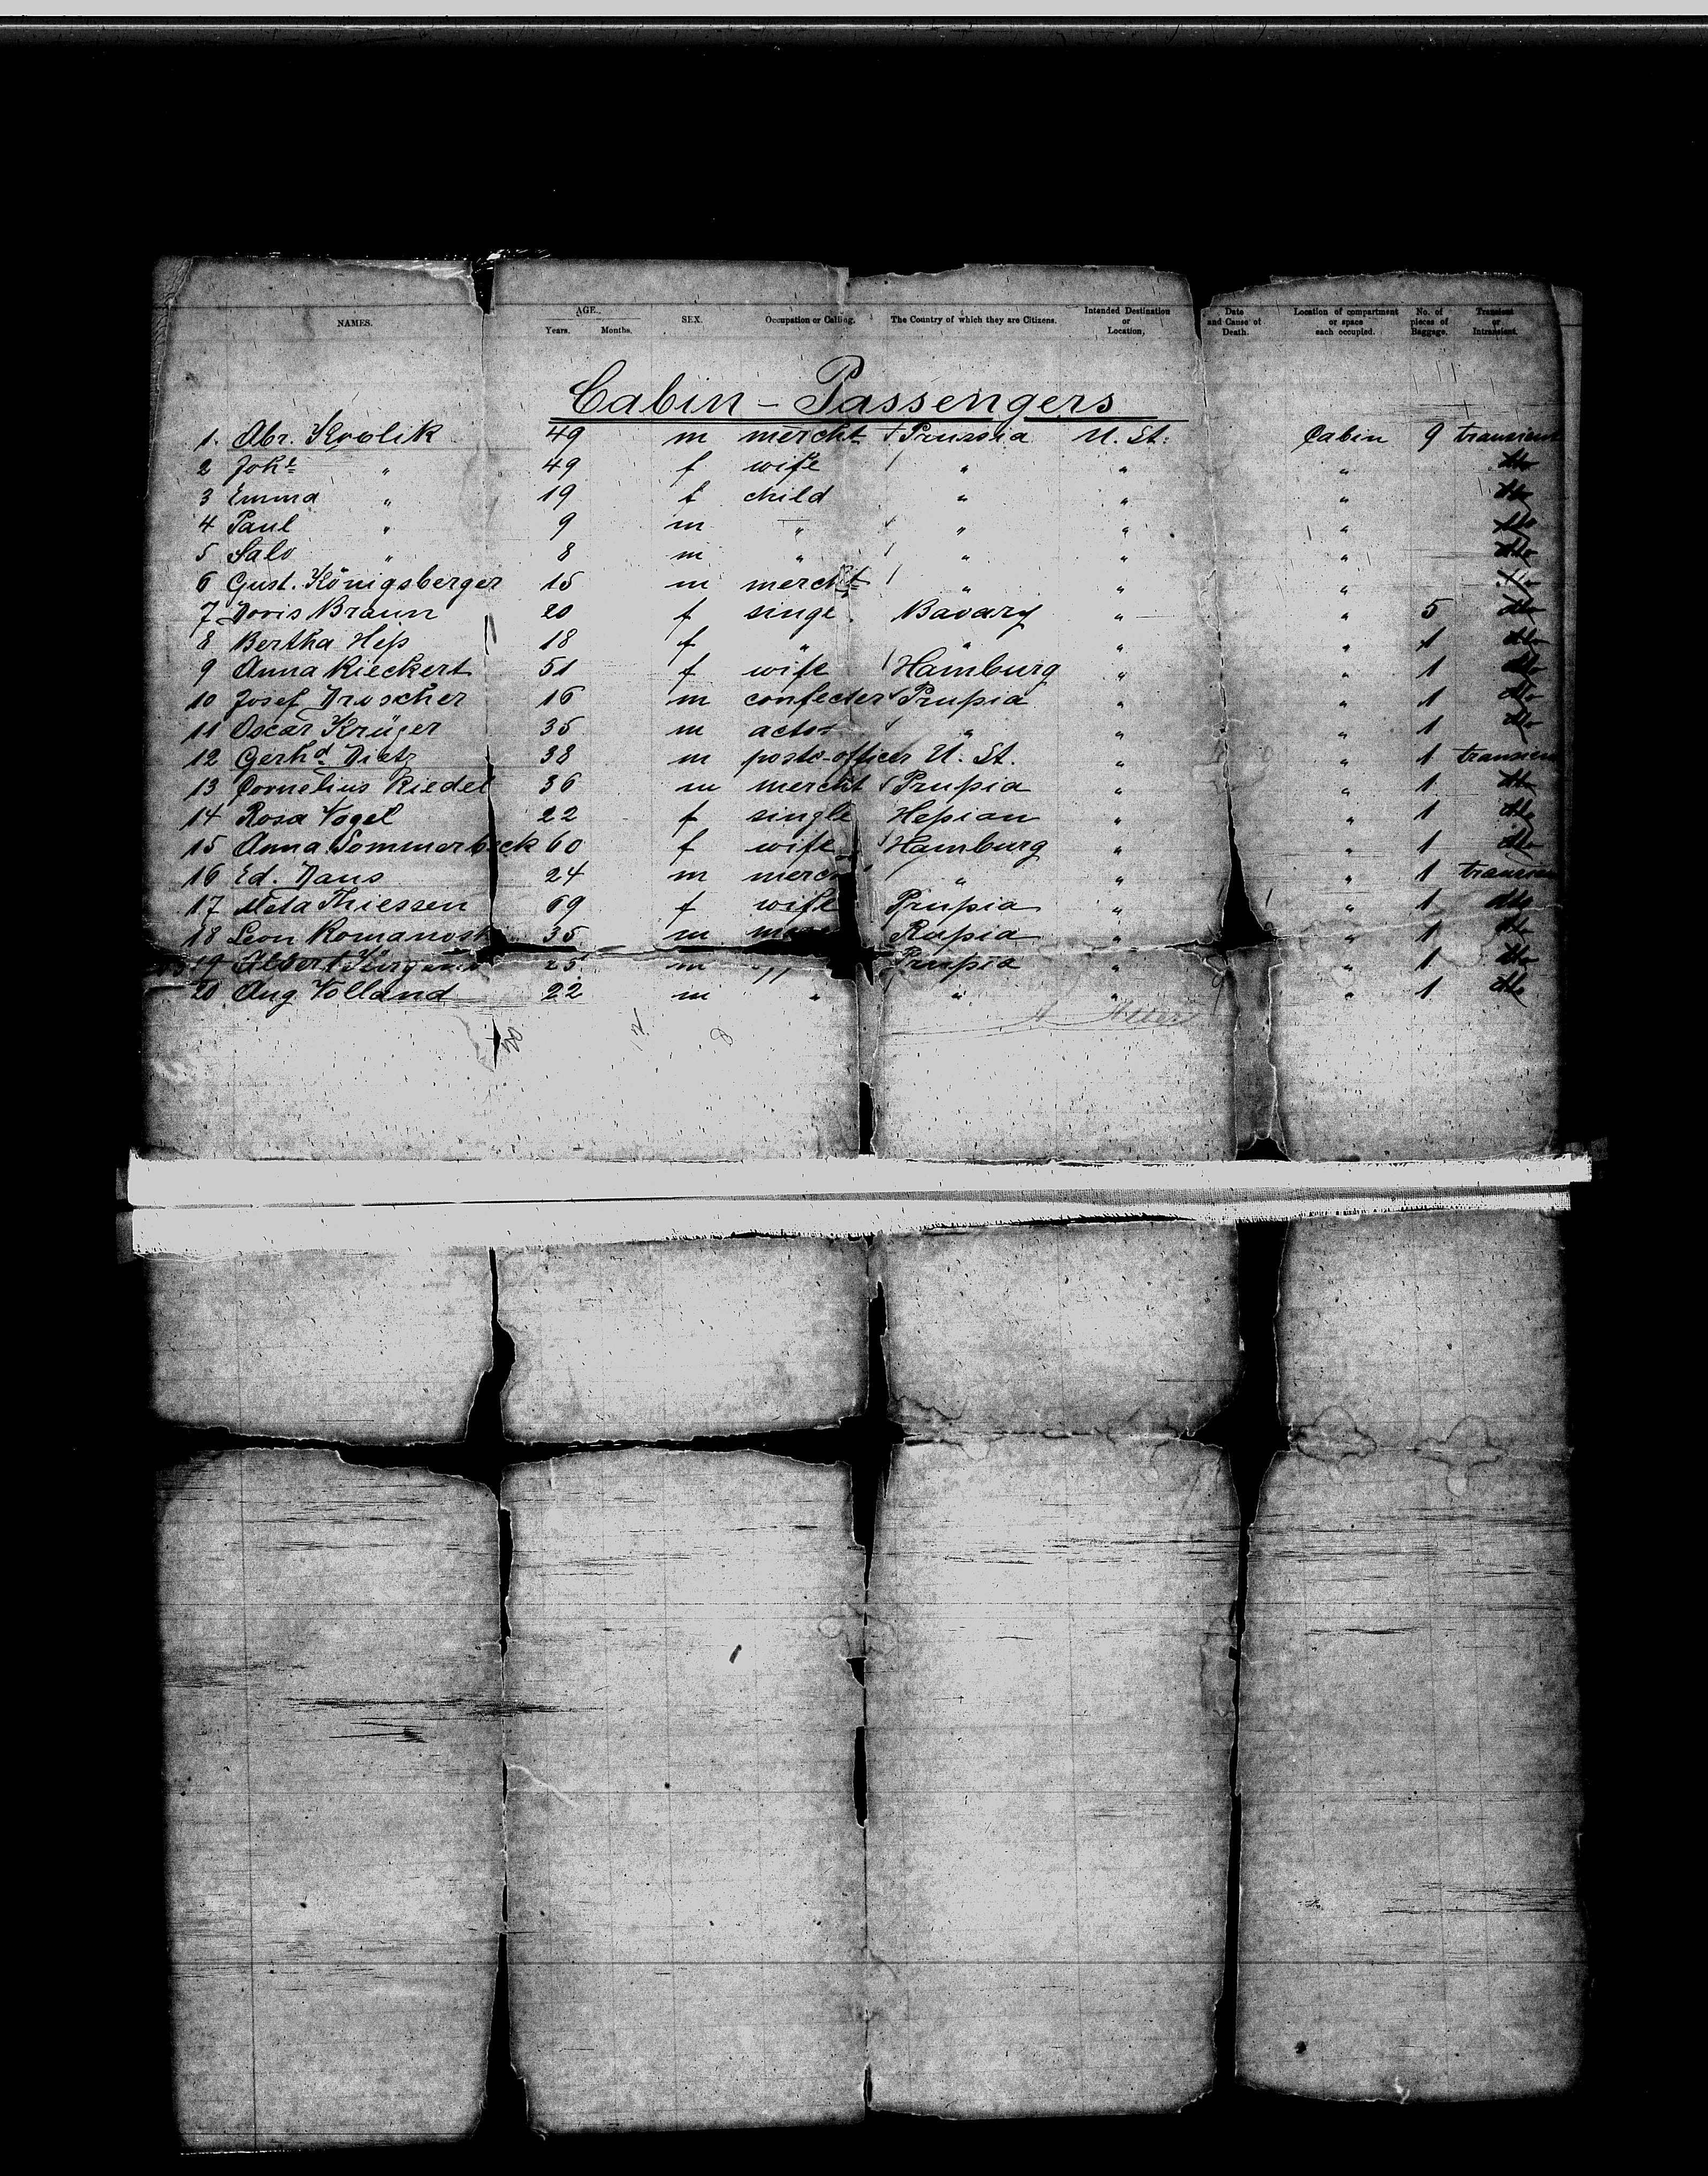 NAMES. AGE. Years. Months. SEX. Occupation or Calling. The Country of which they are Citizens. Intended Destination or Location, Date and Cause of Death. Location of compartment or space each occupied. No. of pieces of Baggage. Transient or Intransient.
Cabin - Passengers
1. Abr. Krolik 49 m mercht Prussia U. St: Cabin 9 transient
2 Joh.e " 49 f wife " " " dto
3 Emma " 19 f child " " " dto
4 Paul " 9 m " " " " dto
5 Salo " 8 m " " " " dto
6 Gust. Königsberger 15 m mercht " " "
7 Doris Braun 20 f singl Bavary " " 5 dto
8 Bertha Heß 18 f " " " " 1 dto
9 Anna Rieckert 51 f wife Hamburg " " 1 dto
10 Josef Droscher 16 m confecter Prußia " " 1 dto
11 Oscar Krüger 35 m actor " " " 1 dto
12 Gerhd. Dietz 38 m posto-officer U. St. " " 1 transient
13 Cornelius Riedel 36 m mercht Prußia " " 1 dto
14 Rosa Vogel 22 f single Heßian " " 1 dto
15 Anna Sommerbeck 60 f wife Hamburg " " 1 dto
16 Ed. Daus 24 m merch " " " 1 transient
17 Meta Thiessen 69 f wife Prußia " " 1 dto
18 Leon 35 m Rußia " " 1 dto
19 Albert 25 m " Prußia " " 1 dto
20 Aug Volland 22 m " " " " 1 dto